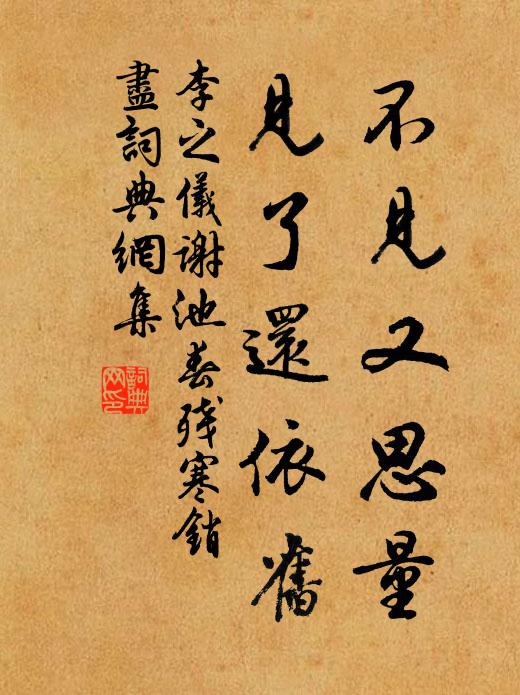 不見又思量
見了還依舊
李之儀謝池春残寒銷
盡詞典網集
詞典
网印